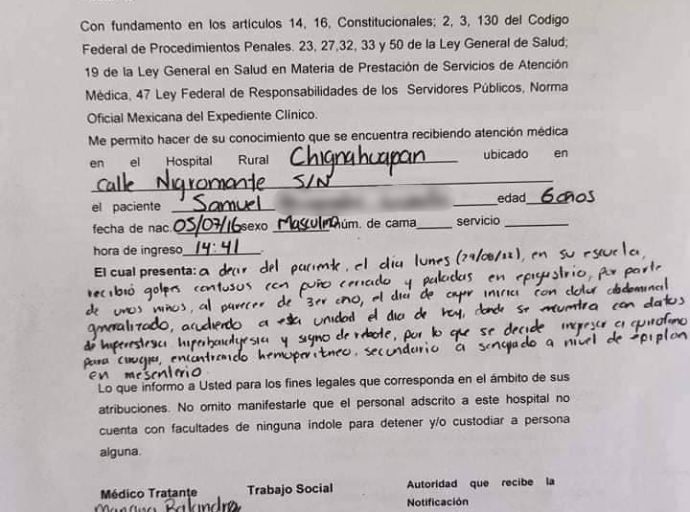 Con fundamento en los articulos 14, 16, Constitucionales; 2, 3, 130 del Codigo
Federal de Procedimientos Penales. 23, 27,32, 33 y 50 de la Ley General de Salud;
19 de la Ley General en Salud en Materia de Prestación de Servicios de Atención
Médica, 47 Ley Federal de Responsabilidades de los Servidores Públicos, Norma
Oficial Mexicana del Expediente Clínico.
Me permito hacer de su conocimiento que se encuentra recibiendo atención médica
en el Hospital Rural Chignahuapan ubicado en
calle Nigromante S/N
el paciente Samuel edad 6 años
fecha de nac. 05/07/16 sexo Masculino núm. de cama servicio
hora de ingreso 14:41
El cual presenta: a decir del paciente, el dia lunes (29/08/22), en su escuela,
recibió golpes contusos con puño cerrado y patadas en epigastrio, por parte
de unos niños, al parecer de 3er año, el dia de ayer inicia con dolor abdominal
generalizado, acudiendo a esta unidad el dia de hoy, donde se encuentra con datos
de hiperestesia hiperbaralgesia y signo de rebote, por lo que se decide ingresar a quirofano
para cirugia, encontrando hemoperitoneo, secundario a sangrado a nivel de epiplon
en mesenterio.
Lo que informo a Usted para los fines legales que corresponda en el ámbito de sus
atribuciones. No omito manifestarle que el personal adscrito a este hospital no
cuenta con facultades de ninguna índole para detener y/o custodiar a persona
alguna.
Médico Tratante Trabajo Social Autoridad que recibe la
Notificación